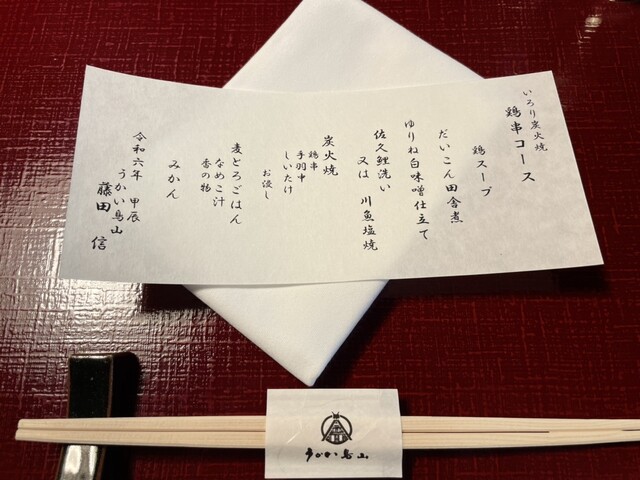 いろり炭火焼
鶏串コース
鶏スープ
だいこん田舎煮
ゆりね白味噌仕立て
佐久鯉洗い
又は 川魚塩焼
炭火焼
鶏串
手羽中
しいたけ
お凌し
麦とろごはん
なめこ汁
香の物
みかん
令和六年 甲辰
うかい鳥山
藤田 信
うかい鳥山